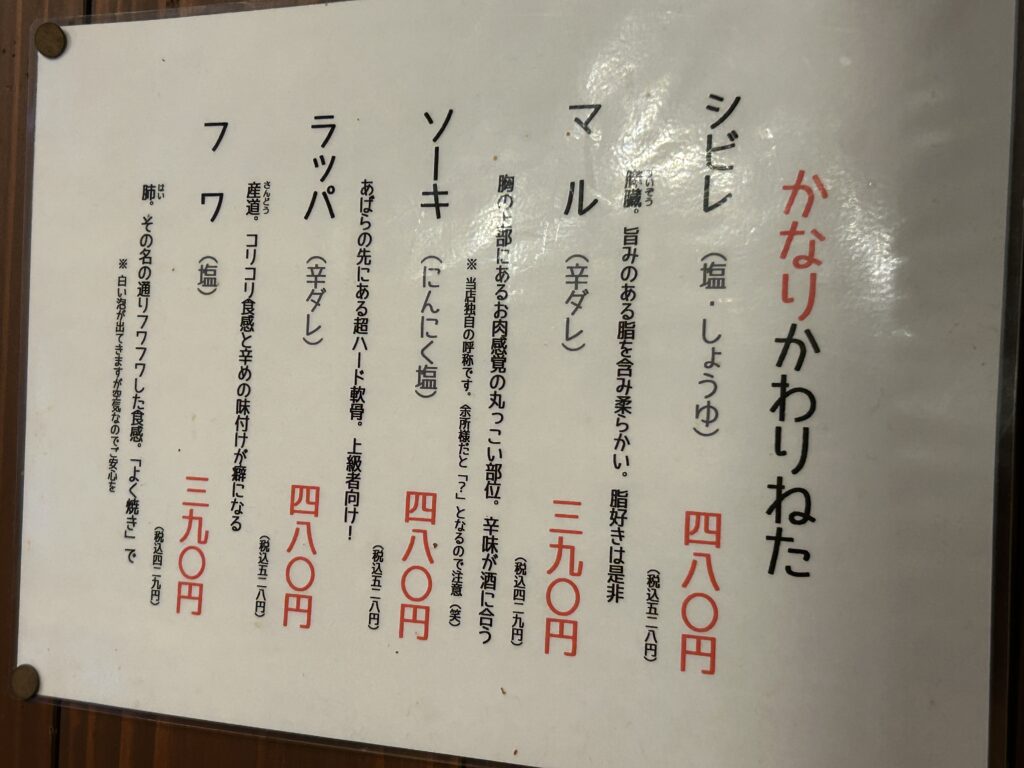 かなりかわりねた
シビレ（塩・しょうゆ）四八〇円
（税込五二八円）
膵臓。旨みのある脂を含み柔らかい。脂好きは是非
すいぞう
マル（辛ダレ）三九〇円
（税込四二九円）
胸の上部にあるお肉感覚の丸っこい部位。辛味が酒に合う
※ 当店独自の呼称です。余所様だと「？」となるので注意（笑）
ソーキ（にんにく塩）四八〇円
（税込五二八円）
あばらの先にある超ハード軟骨。上級者向け！
ラッパ（辛ダレ）四八〇円
（税込五二八円）
産道。コリコリ食感と辛めの味付けが癖になる
さんどう
フワ（塩）三九〇円
（税込四二九円）
肺。その名の通りフワフワした食感。「よく焼き」で
はい
※ 白い泡が出てきますが空気なのでご安心を